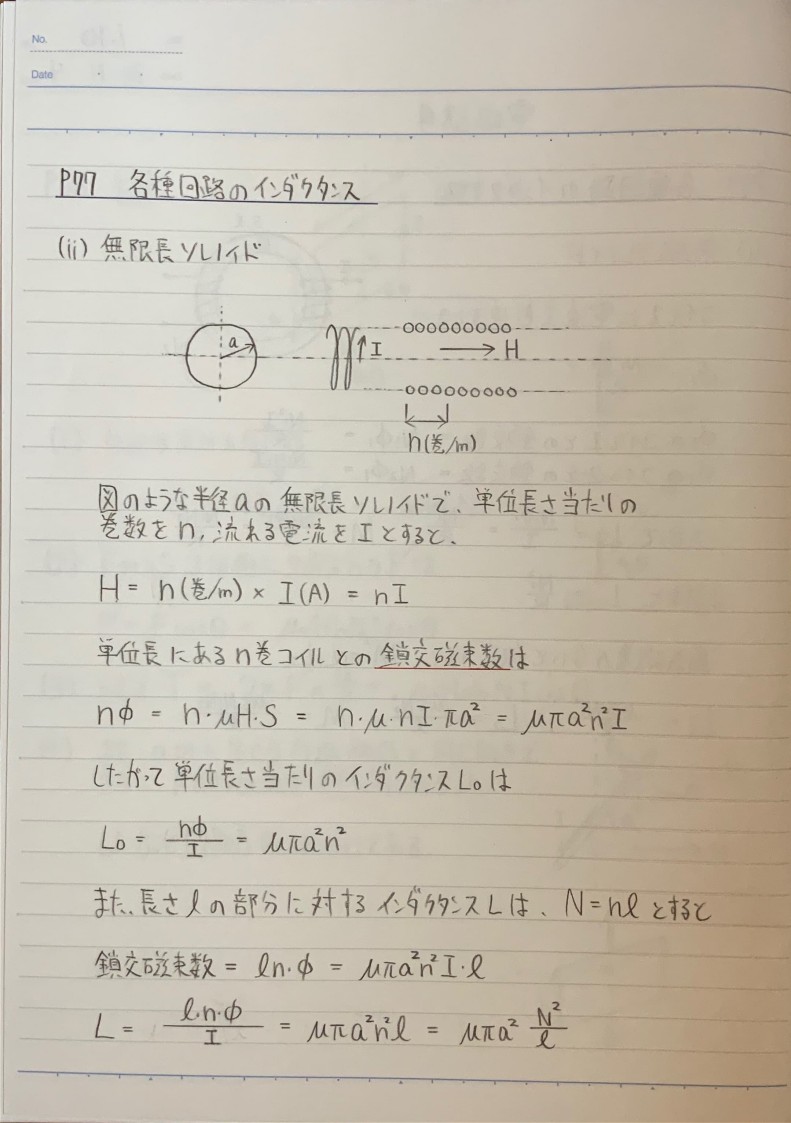 No.
Date
P77 各種回路のインダクタンス
(ii) 無限長ソレノイド
a I H
n(巻/m)
図のような半径aの無限長ソレノイドで、単位長さ当たりの
巻数をn,流れる電流をIとすると、
H = n(巻/m) × I(A) = nI
単位長にあるn巻コイルとの鎖交磁束数は
nΦ = n・μH・S = n・μ・nI・πa² = μπa²n²I
したがって単位長さ当たりのインダクタンスL₀は
L₀ = nΦ/I = μπa²n²
また、長さℓの部分に対するインダクタンスLは、N=nℓとすると
鎖交磁束数 = ℓn・Φ = μπa²n²I・ℓ
L = ℓ・n・Φ/I = μπa²n²ℓ = μπa² N²/ℓ